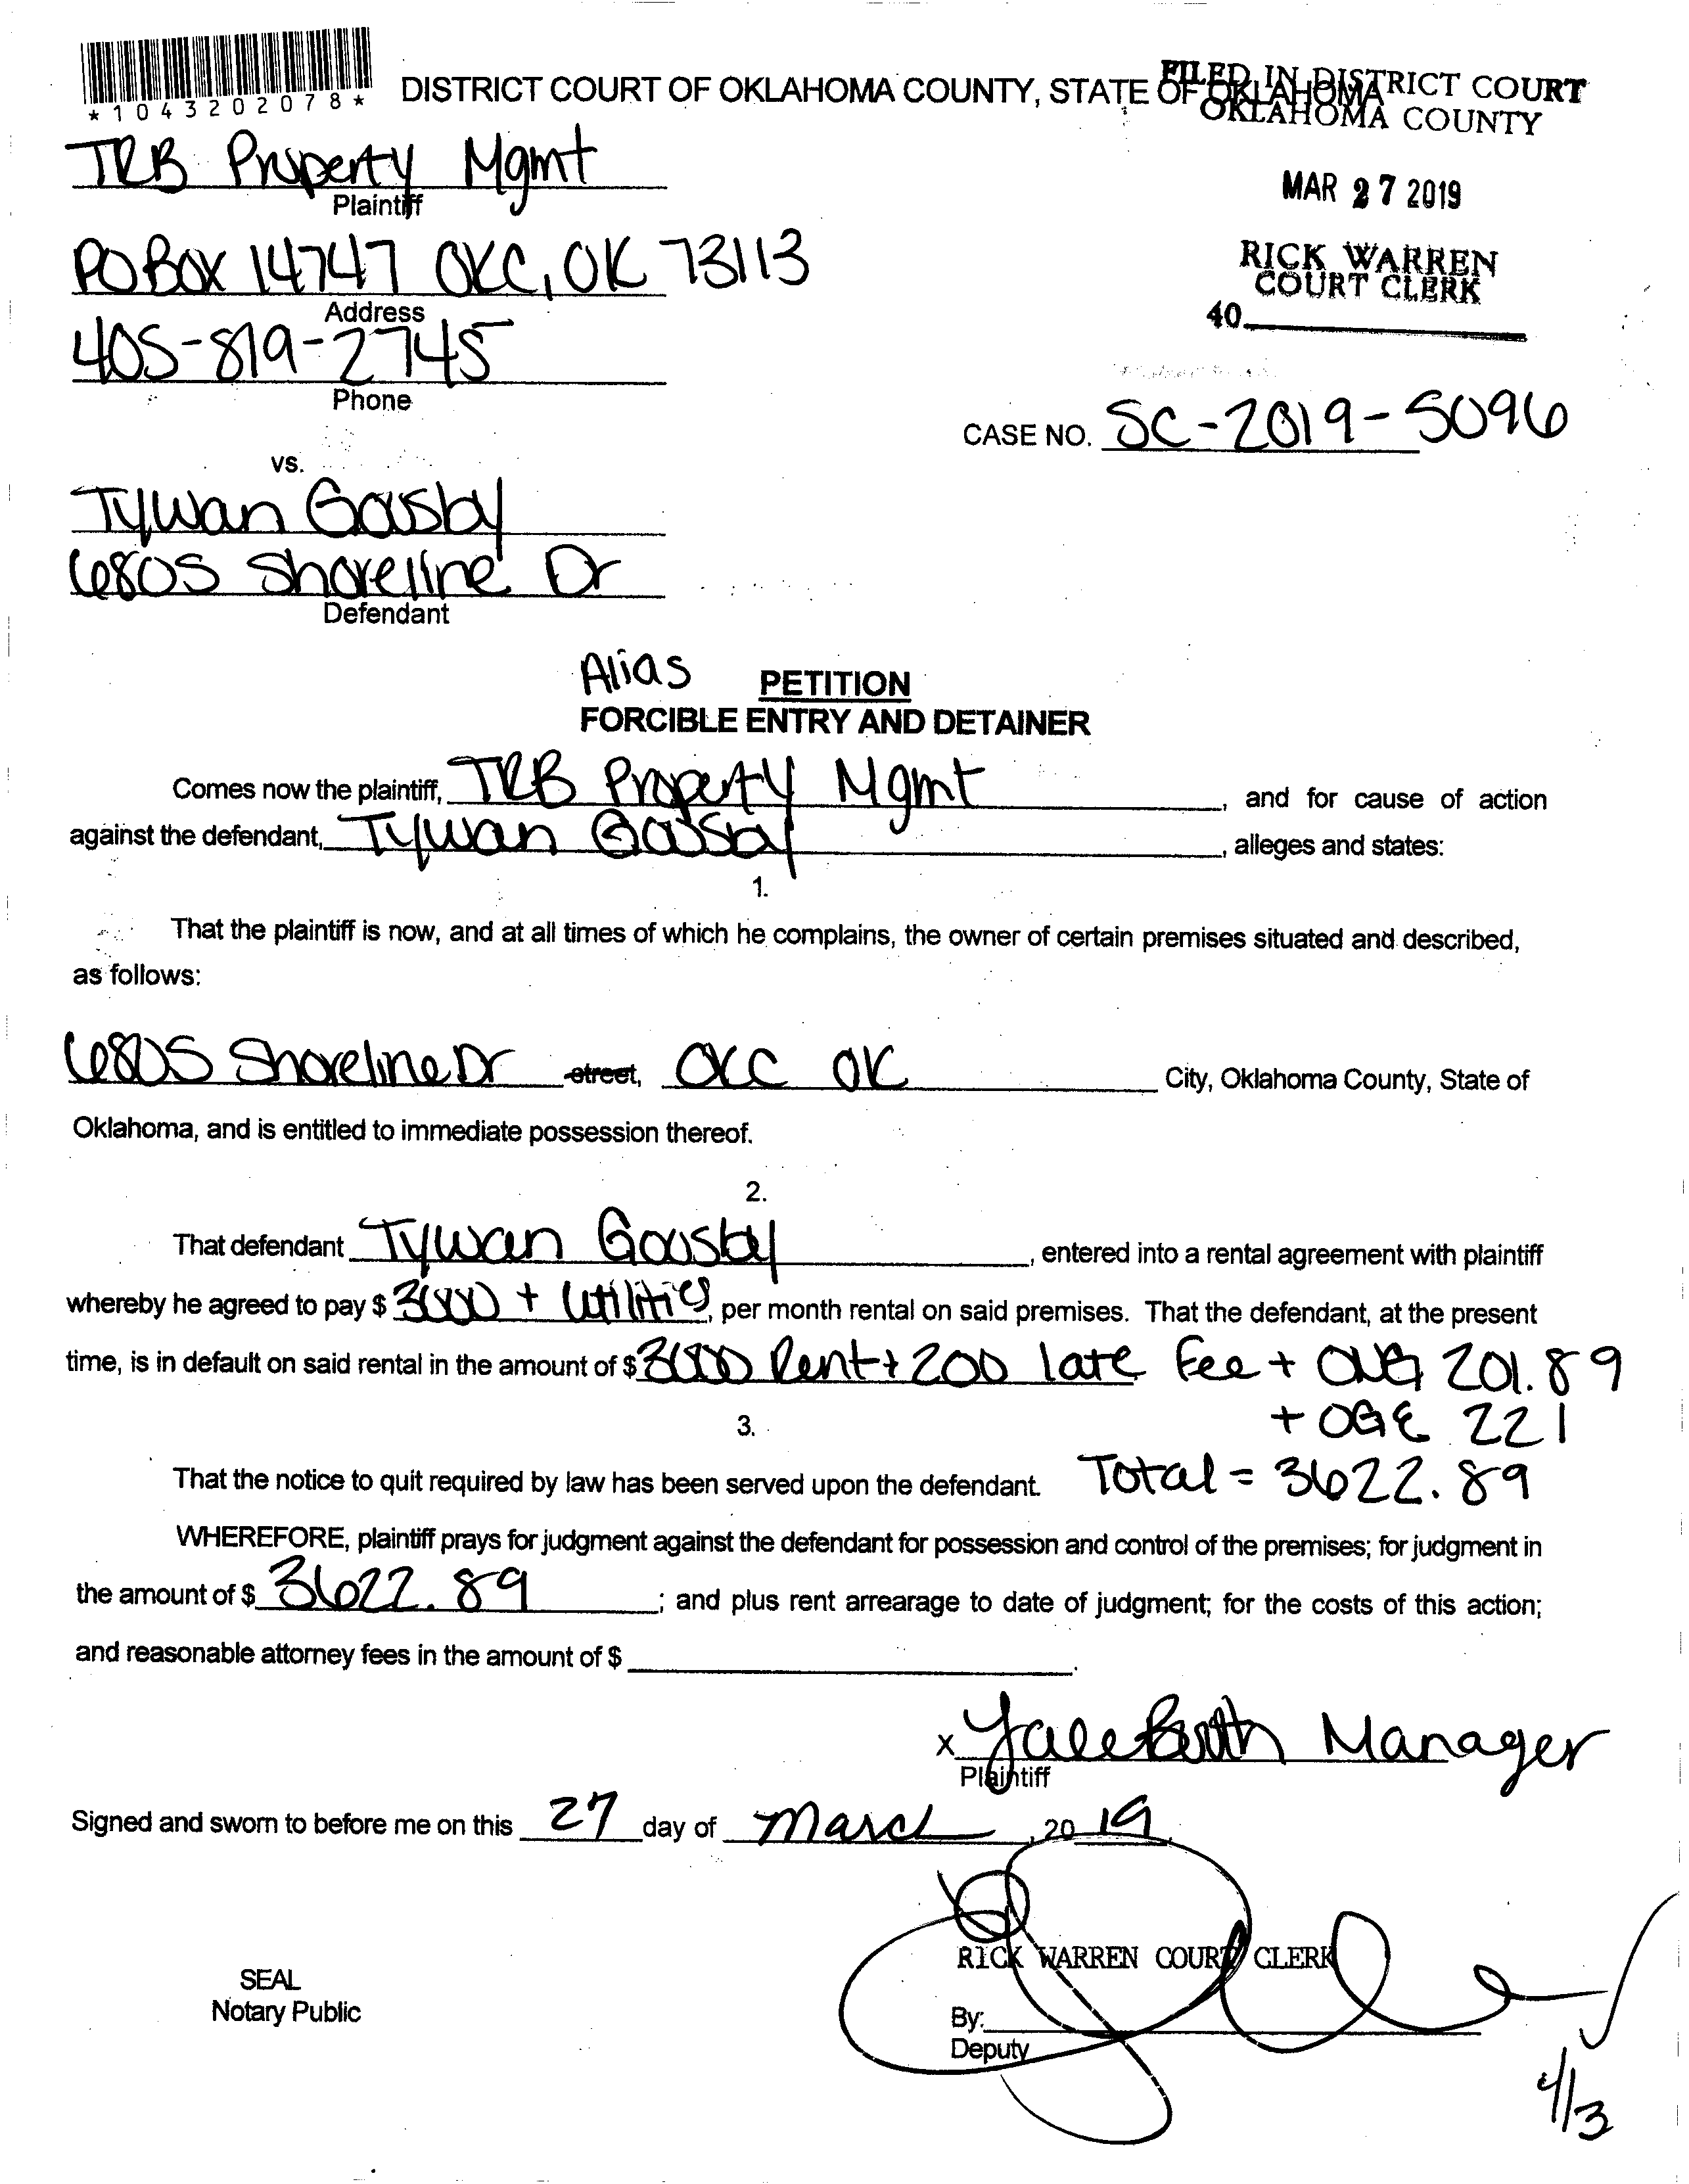 *1043202078*
DISTRICT COURT OF OKLAHOMA COUNTY, STATE OF OKLAHOMA
FILED IN DISTRICT COURT
OKLAHOMA COUNTY
MAR 27 2019
RICK WARREN
COURT CLERK
40
TRB Property Mgmt
Plaintiff
PO BOX 14747 OKC, OK 73113
Address
405-819-2745
Phone
CASE NO. SC-2019-5096
vs.
Tywan Gousby
6805 Shoreline Dr
Defendant
Alias PETITION
FORCIBLE ENTRY AND DETAINER
Comes now the plaintiff, TRB Property Mgmt, and for cause of action
against the defendant, Tywan Gousby, alleges and states:
1.
That the plaintiff is now, and at all times of which he complains, the owner of certain premises situated and described,
as follows:
6805 Shoreline Dr street, OKC OK City, Oklahoma County, State of
Oklahoma, and is entitled to immediate possession thereof.
2.
That defendant Tywan Gousby, entered into a rental agreement with plaintiff
whereby he agreed to pay $ 3000 + Utilities, per month rental on said premises. That the defendant, at the present
time, is in default on said rental in the amount of $ 3000 Rent + 200 late Fee + ONG 201.89
+ OGE 221
3.
That the notice to quit required by law has been served upon the defendant. Total = 3622.89
WHEREFORE, plaintiff prays for judgment against the defendant for possession and control of the premises; for judgment in
the amount of $ 3622.89; and plus rent arrearage to date of judgment; for the costs of this action;
and reasonable attorney fees in the amount of $
x Manager
Plaintiff
Signed and sworn to before me on this 27 day of March, 20 19.
RICK WARREN COURT CLERK
SEAL
Notary Public
By:
Deputy
4/3